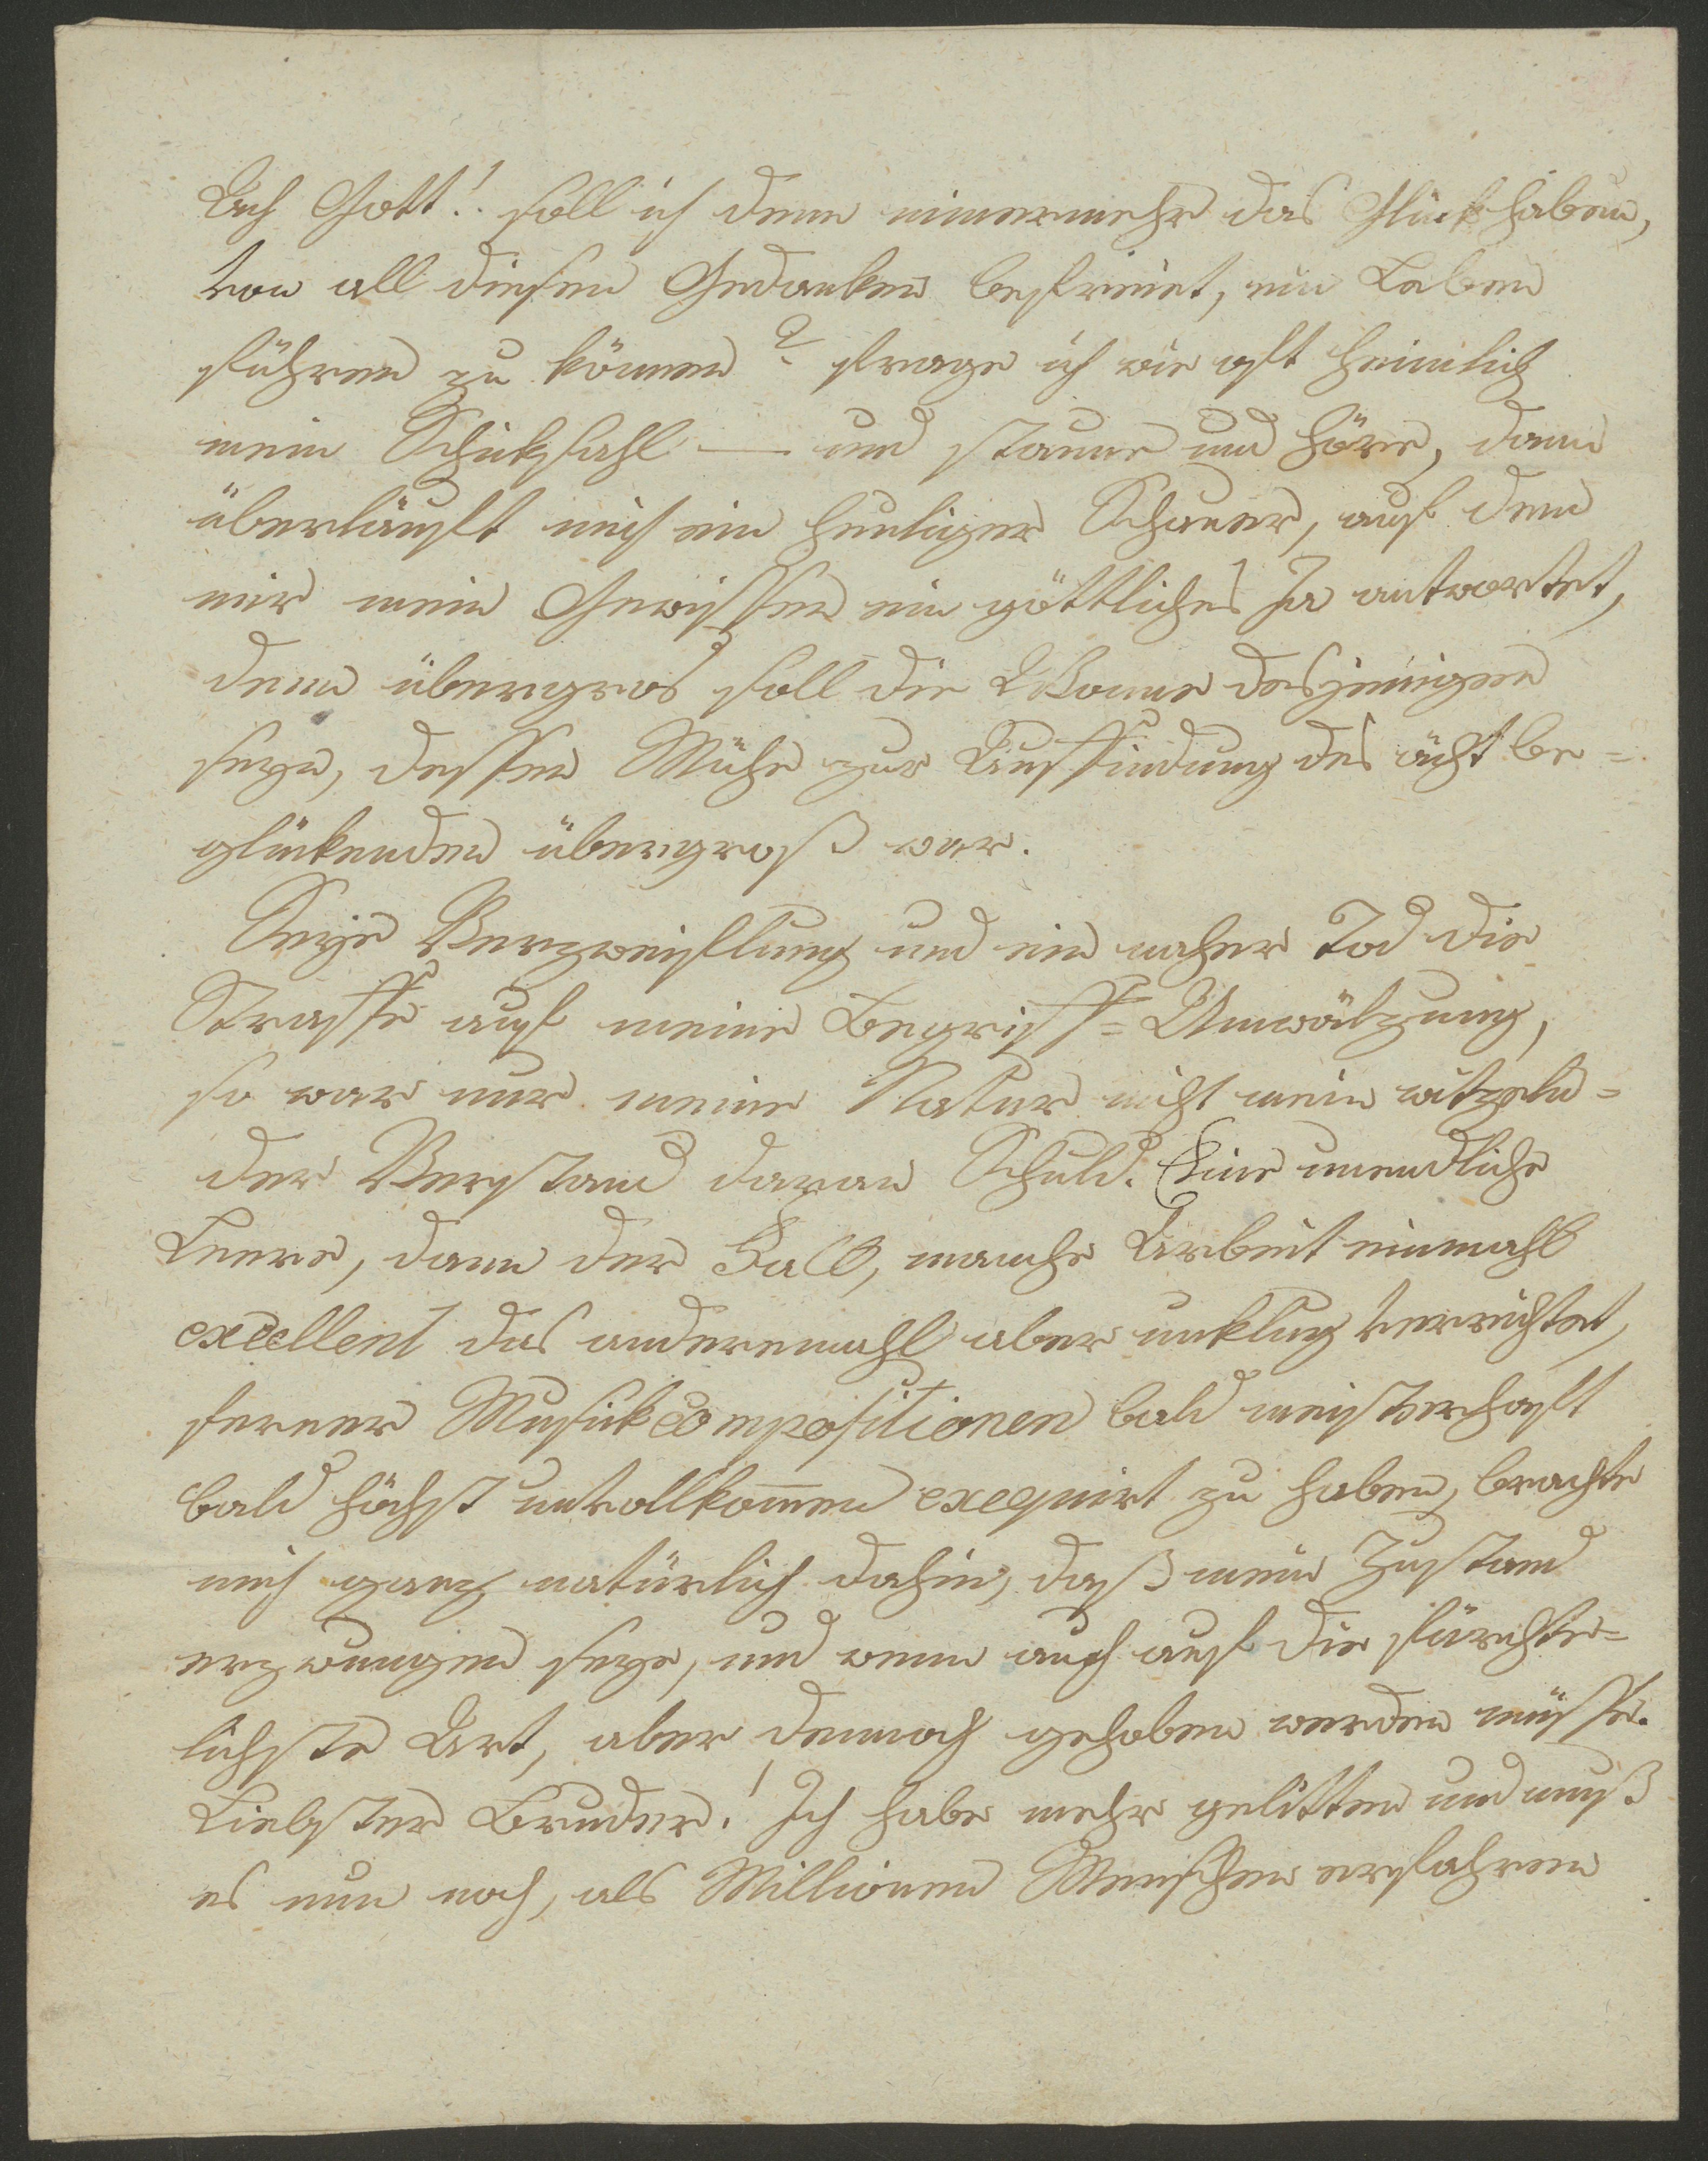 Ach Gott! soll ich denn nimermehr das Glück haben,
von all diesen Gedanken befreiet, ein Leben
führen zu können? frage ich wie oft heimlich
mein Schiksahl — und staune und höre, dann
überläuft mich ein heiliger Schauer, auf den
mir mein Gewissen ein göttliches Ja antwortet,
denn übergros soll die Wonne desjenigen
seyn, dessen Mühe zur Auffindung des ächt be=
glückenden übergroß war.
Seye Verzweiflung und ein naher Tod die
Straffe auf meine Begriff=Umwälzung,
so war nur meine Natur nicht mein witzeln=
der Verstand daran Schuld. Eine unendliche
Leere, dann der Fall, manche Arbeit einmahl
excellent das anderemahl aber unklug verrichtet,
ferner Musikcompositionen bald meisterhaft
bald höchst unvollkomen exequirt zu haben, brachte
mich ganz natürlich dahin, daß mein Zustand
erzwungen seye, und wenn auch auf die fürchter=
lichste Art, aber dennoch gehoben werden müsse.
Liebster Bruder! Ich habe mehr gelitten und muß
es nun noch, als Millionen Menschen erfahren